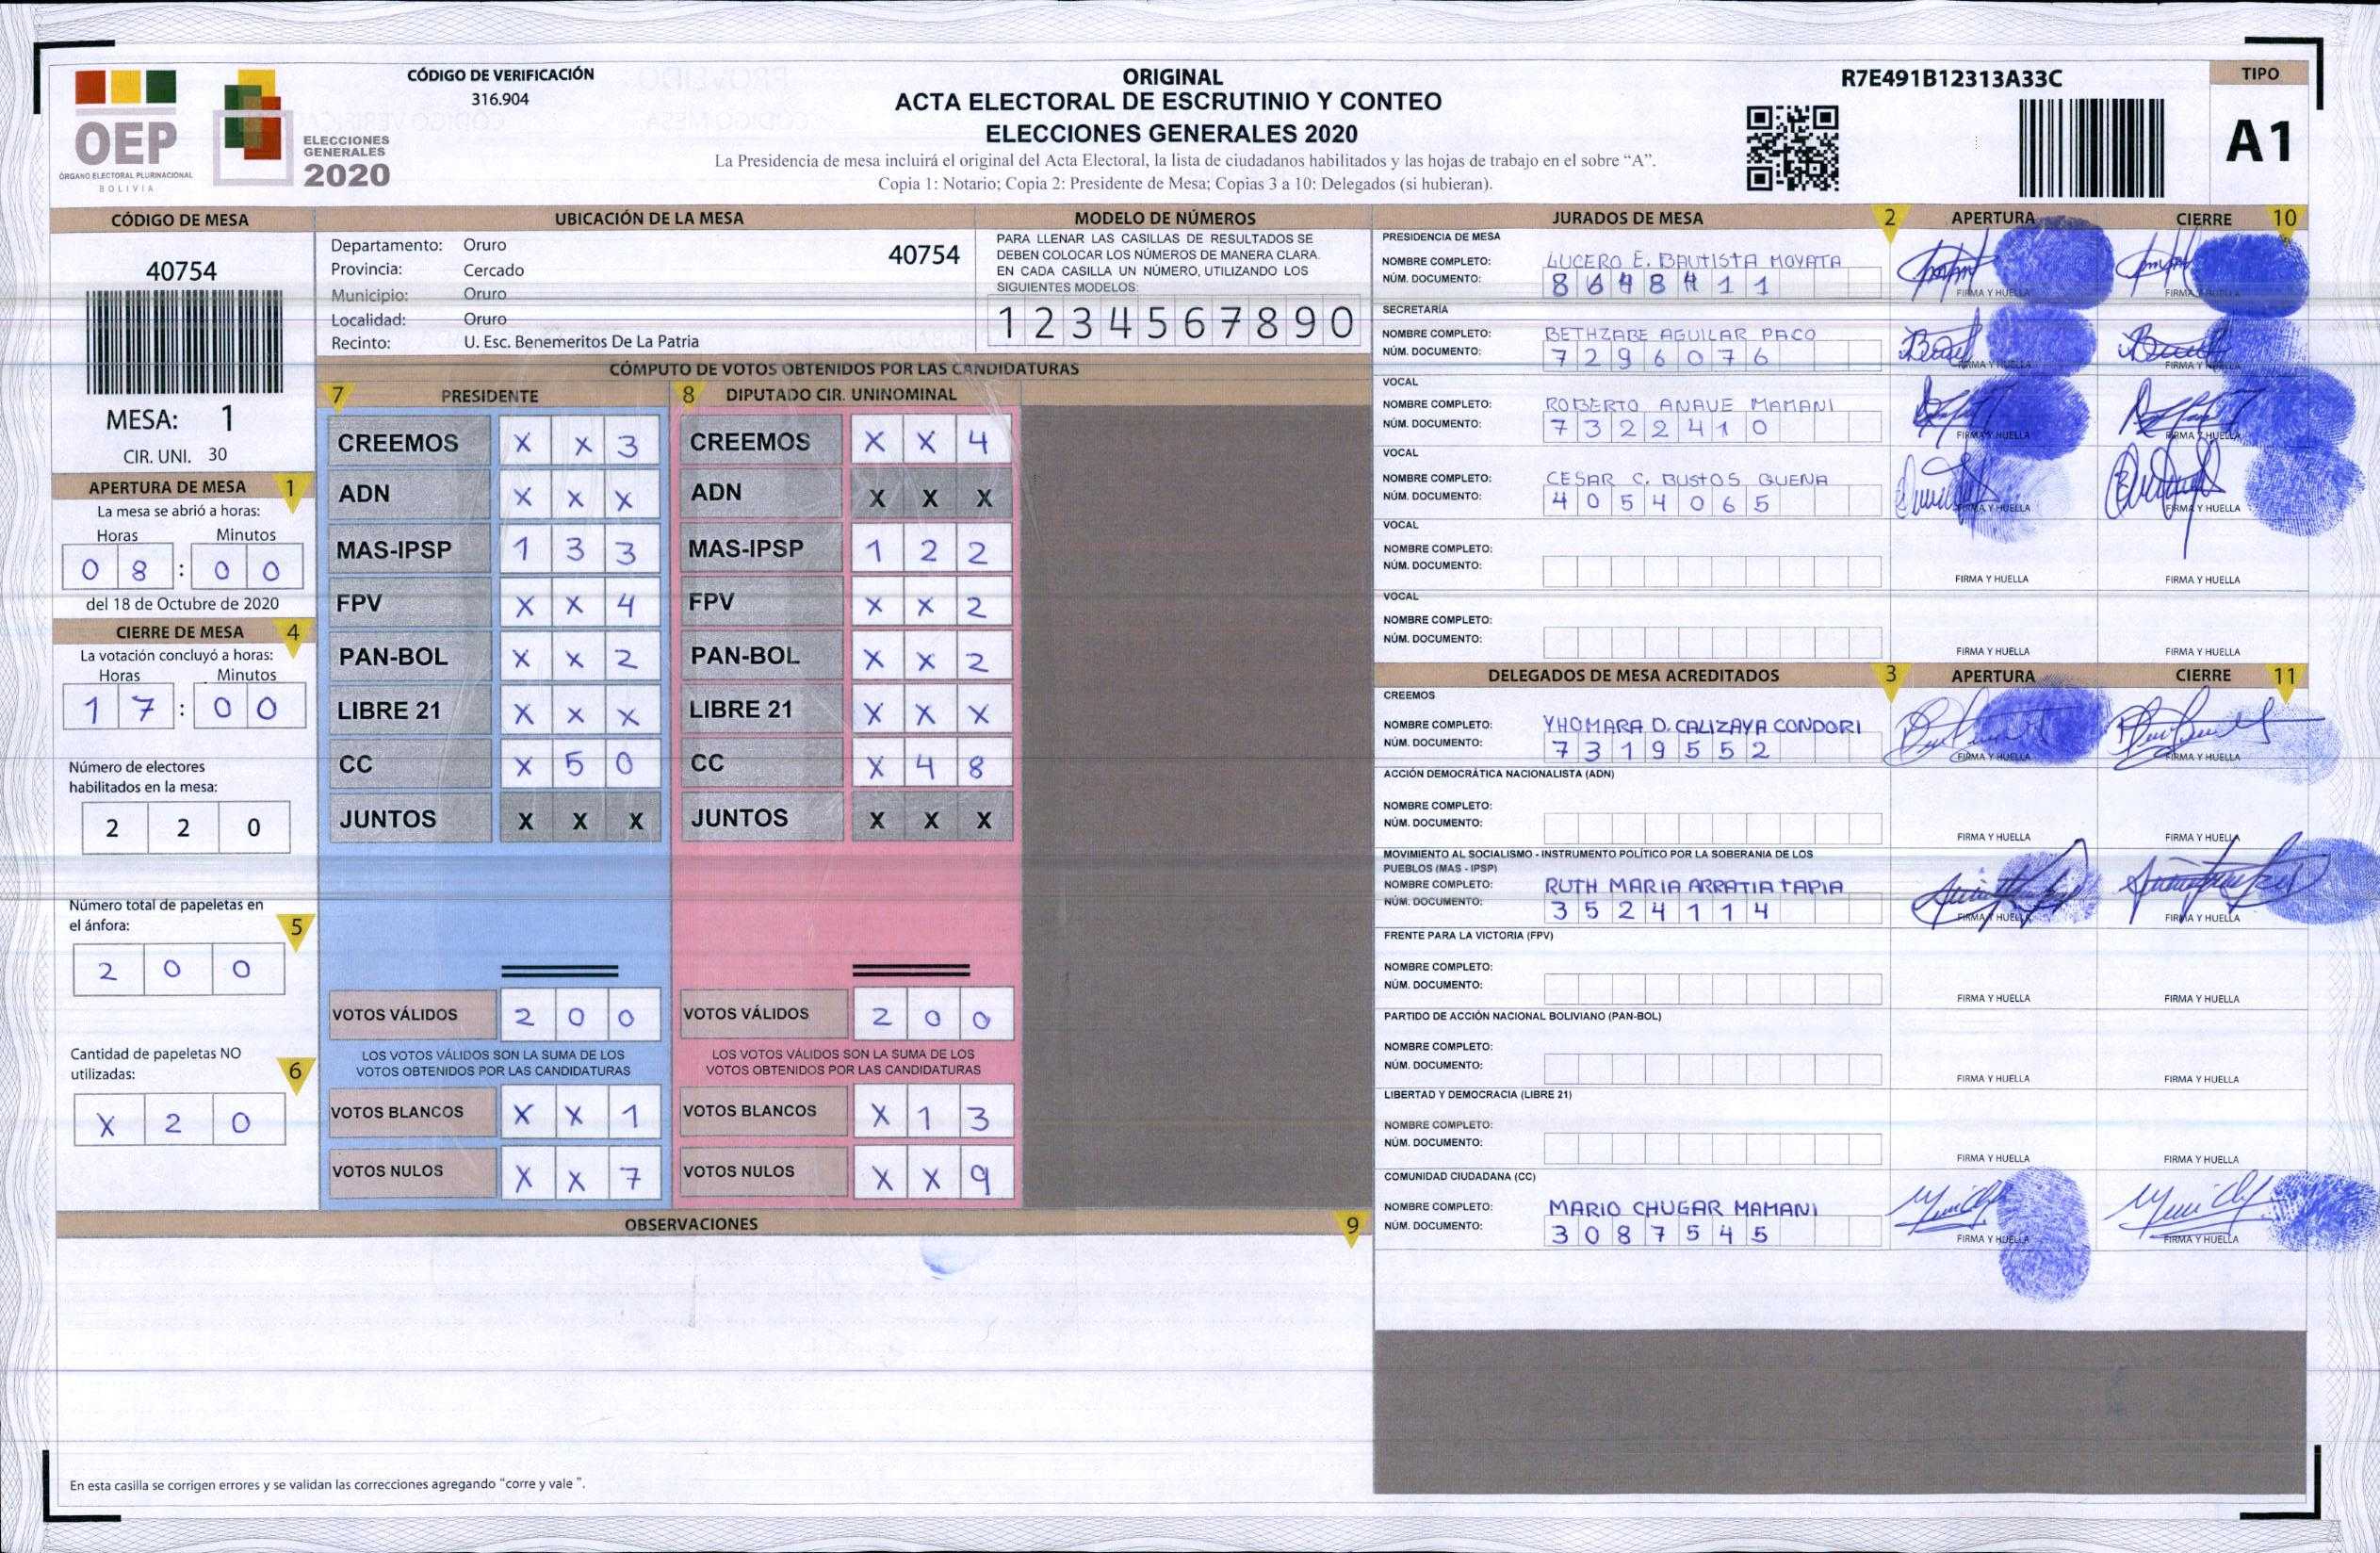 OEP
ÓRGANO ELECTORAL PLURINACIONAL
BOLIVIA
ELECCIONES
GENERALES
2020
CÓDIGO DE VERIFICACIÓN
316.904
ORIGINAL
ACTA ELECTORAL DE ESCRUTINIO Y CONTEO
ELECCIONES GENERALES 2020
La Presidencia de mesa incluirá el original del Acta Electoral, la lista de ciudadanos habilitados y las hojas de trabajo en el sobre “A”.
Copia 1: Notario; Copia 2: Presidente de Mesa; Copias 3 a 10: Delegados (si hubieran).
R7E491B12313A33C
TIPO
A1
CÓDIGO DE MESA
40754
MESA: 1
CIR. UNI. 30
APERTURA DE MESA 1
La mesa se abrió a horas:
Horas Minutos
0 8 : 0 0
del 18 de Octubre de 2020
CIERRE DE MESA 4
La votación concluyó a horas:
Horas Minutos
1 7 : 0 0
Número de electores
habilitados en la mesa:
2 2 0
Número total de papeletas en
el ánfora:
5
2 0 0
Cantidad de papeletas NO
utilizadas:
6
X 2 0
UBICACIÓN DE LA MESA
Departamento: Oruro
40754
Provincia: Cercado
Municipio: Oruro
Localidad: Oruro
Recinto: U. Esc. Benemeritos De La Patria
MODELO DE NÚMEROS
PARA LLENAR LAS CASILLAS DE RESULTADOS SE
DEBEN COLOCAR LOS NÚMEROS DE MANERA CLARA.
EN CADA CASILLA UN NÚMERO, UTILIZANDO LOS
SIGUIENTES MODELOS:
1 2 3 4 5 6 7 8 9 0
CÓMPUTO DE VOTOS OBTENIDOS POR LAS CANDIDATURAS
7 PRESIDENTE 8 DIPUTADO CIR. UNINOMINAL
CREEMOS X X 3 CREEMOS X X 4
ADN X X X ADN X X X
MAS-IPSP 1 3 3 MAS-IPSP 1 2 2
FPV X X 4 FPV X X 2
PAN-BOL X X 2 PAN-BOL X X 2
LIBRE 21 X X X LIBRE 21 X X X
CC X 5 0 CC X 4 8
JUNTOS X X X JUNTOS X X X
VOTOS VÁLIDOS 2 0 0 VOTOS VÁLIDOS 2 0 0
LOS VOTOS VÁLIDOS SON LA SUMA DE LOS LOS VOTOS VÁLIDOS SON LA SUMA DE LOS
VOTOS OBTENIDOS POR LAS CANDIDATURAS VOTOS OBTENIDOS POR LAS CANDIDATURAS
VOTOS BLANCOS X X 1 VOTOS BLANCOS X 1 3
VOTOS NULOS X X 7 VOTOS NULOS X X 9
OBSERVACIONES 9
En esta casilla se corrigen errores y se validan las correcciones agregando “corre y vale ”.
JURADOS DE MESA 2 APERTURA CIERRE 10
PRESIDENCIA DE MESA
NOMBRE COMPLETO: LUCERO E. BAUTISTA MOYATA
NÚM. DOCUMENTO: 8 6 4 8 4 1 1
FIRMA Y HUELLA FIRMA Y HUELLA
SECRETARÍA
NOMBRE COMPLETO: BETHZABE AGUILAR PACO
NÚM. DOCUMENTO: 7 2 9 6 0 7 6
FIRMA Y HUELLA FIRMA Y HUELLA
VOCAL
NOMBRE COMPLETO: ROBERTO ANAVE MAMANI
NÚM. DOCUMENTO: 7 3 2 2 4 1 0
FIRMA Y HUELLA FIRMA Y HUELLA
VOCAL
NOMBRE COMPLETO: CESAR C. BUSTOS GUENA
NÚM. DOCUMENTO: 4 0 5 4 0 6 5
FIRMA Y HUELLA FIRMA Y HUELLA
VOCAL
NOMBRE COMPLETO:
NÚM. DOCUMENTO:
FIRMA Y HUELLA FIRMA Y HUELLA
VOCAL
NOMBRE COMPLETO:
NÚM. DOCUMENTO:
FIRMA Y HUELLA FIRMA Y HUELLA
DELEGADOS DE MESA ACREDITADOS 3 APERTURA CIERRE 11
CREEMOS
NOMBRE COMPLETO: YHOMARA D. CALIZAYA CONDORI
NÚM. DOCUMENTO: 7 3 1 9 5 5 2
FIRMA Y HUELLA FIRMA Y HUELLA
ACCIÓN DEMOCRÁTICA NACIONALISTA (ADN)
NOMBRE COMPLETO:
NÚM. DOCUMENTO:
FIRMA Y HUELLA FIRMA Y HUELLA
MOVIMIENTO AL SOCIALISMO - INSTRUMENTO POLÍTICO POR LA SOBERANIA DE LOS
PUEBLOS (MAS - IPSP)
NOMBRE COMPLETO: RUTH MARIA ARRATIA TAPIA
NÚM. DOCUMENTO: 3 5 2 4 1 1 4
FIRMA Y HUELLA FIRMA Y HUELLA
FRENTE PARA LA VICTORIA (FPV)
NOMBRE COMPLETO:
NÚM. DOCUMENTO:
FIRMA Y HUELLA FIRMA Y HUELLA
PARTIDO DE ACCIÓN NACIONAL BOLIVIANO (PAN-BOL)
NOMBRE COMPLETO:
NÚM. DOCUMENTO:
FIRMA Y HUELLA FIRMA Y HUELLA
LIBERTAD Y DEMOCRACIA (LIBRE 21)
NOMBRE COMPLETO:
NÚM. DOCUMENTO:
FIRMA Y HUELLA FIRMA Y HUELLA
COMUNIDAD CIUDADANA (CC)
NOMBRE COMPLETO: MARIO CHUGAR MAMANI
NÚM. DOCUMENTO: 3 0 8 7 5 4 5
FIRMA Y HUELLA FIRMA Y HUELLA